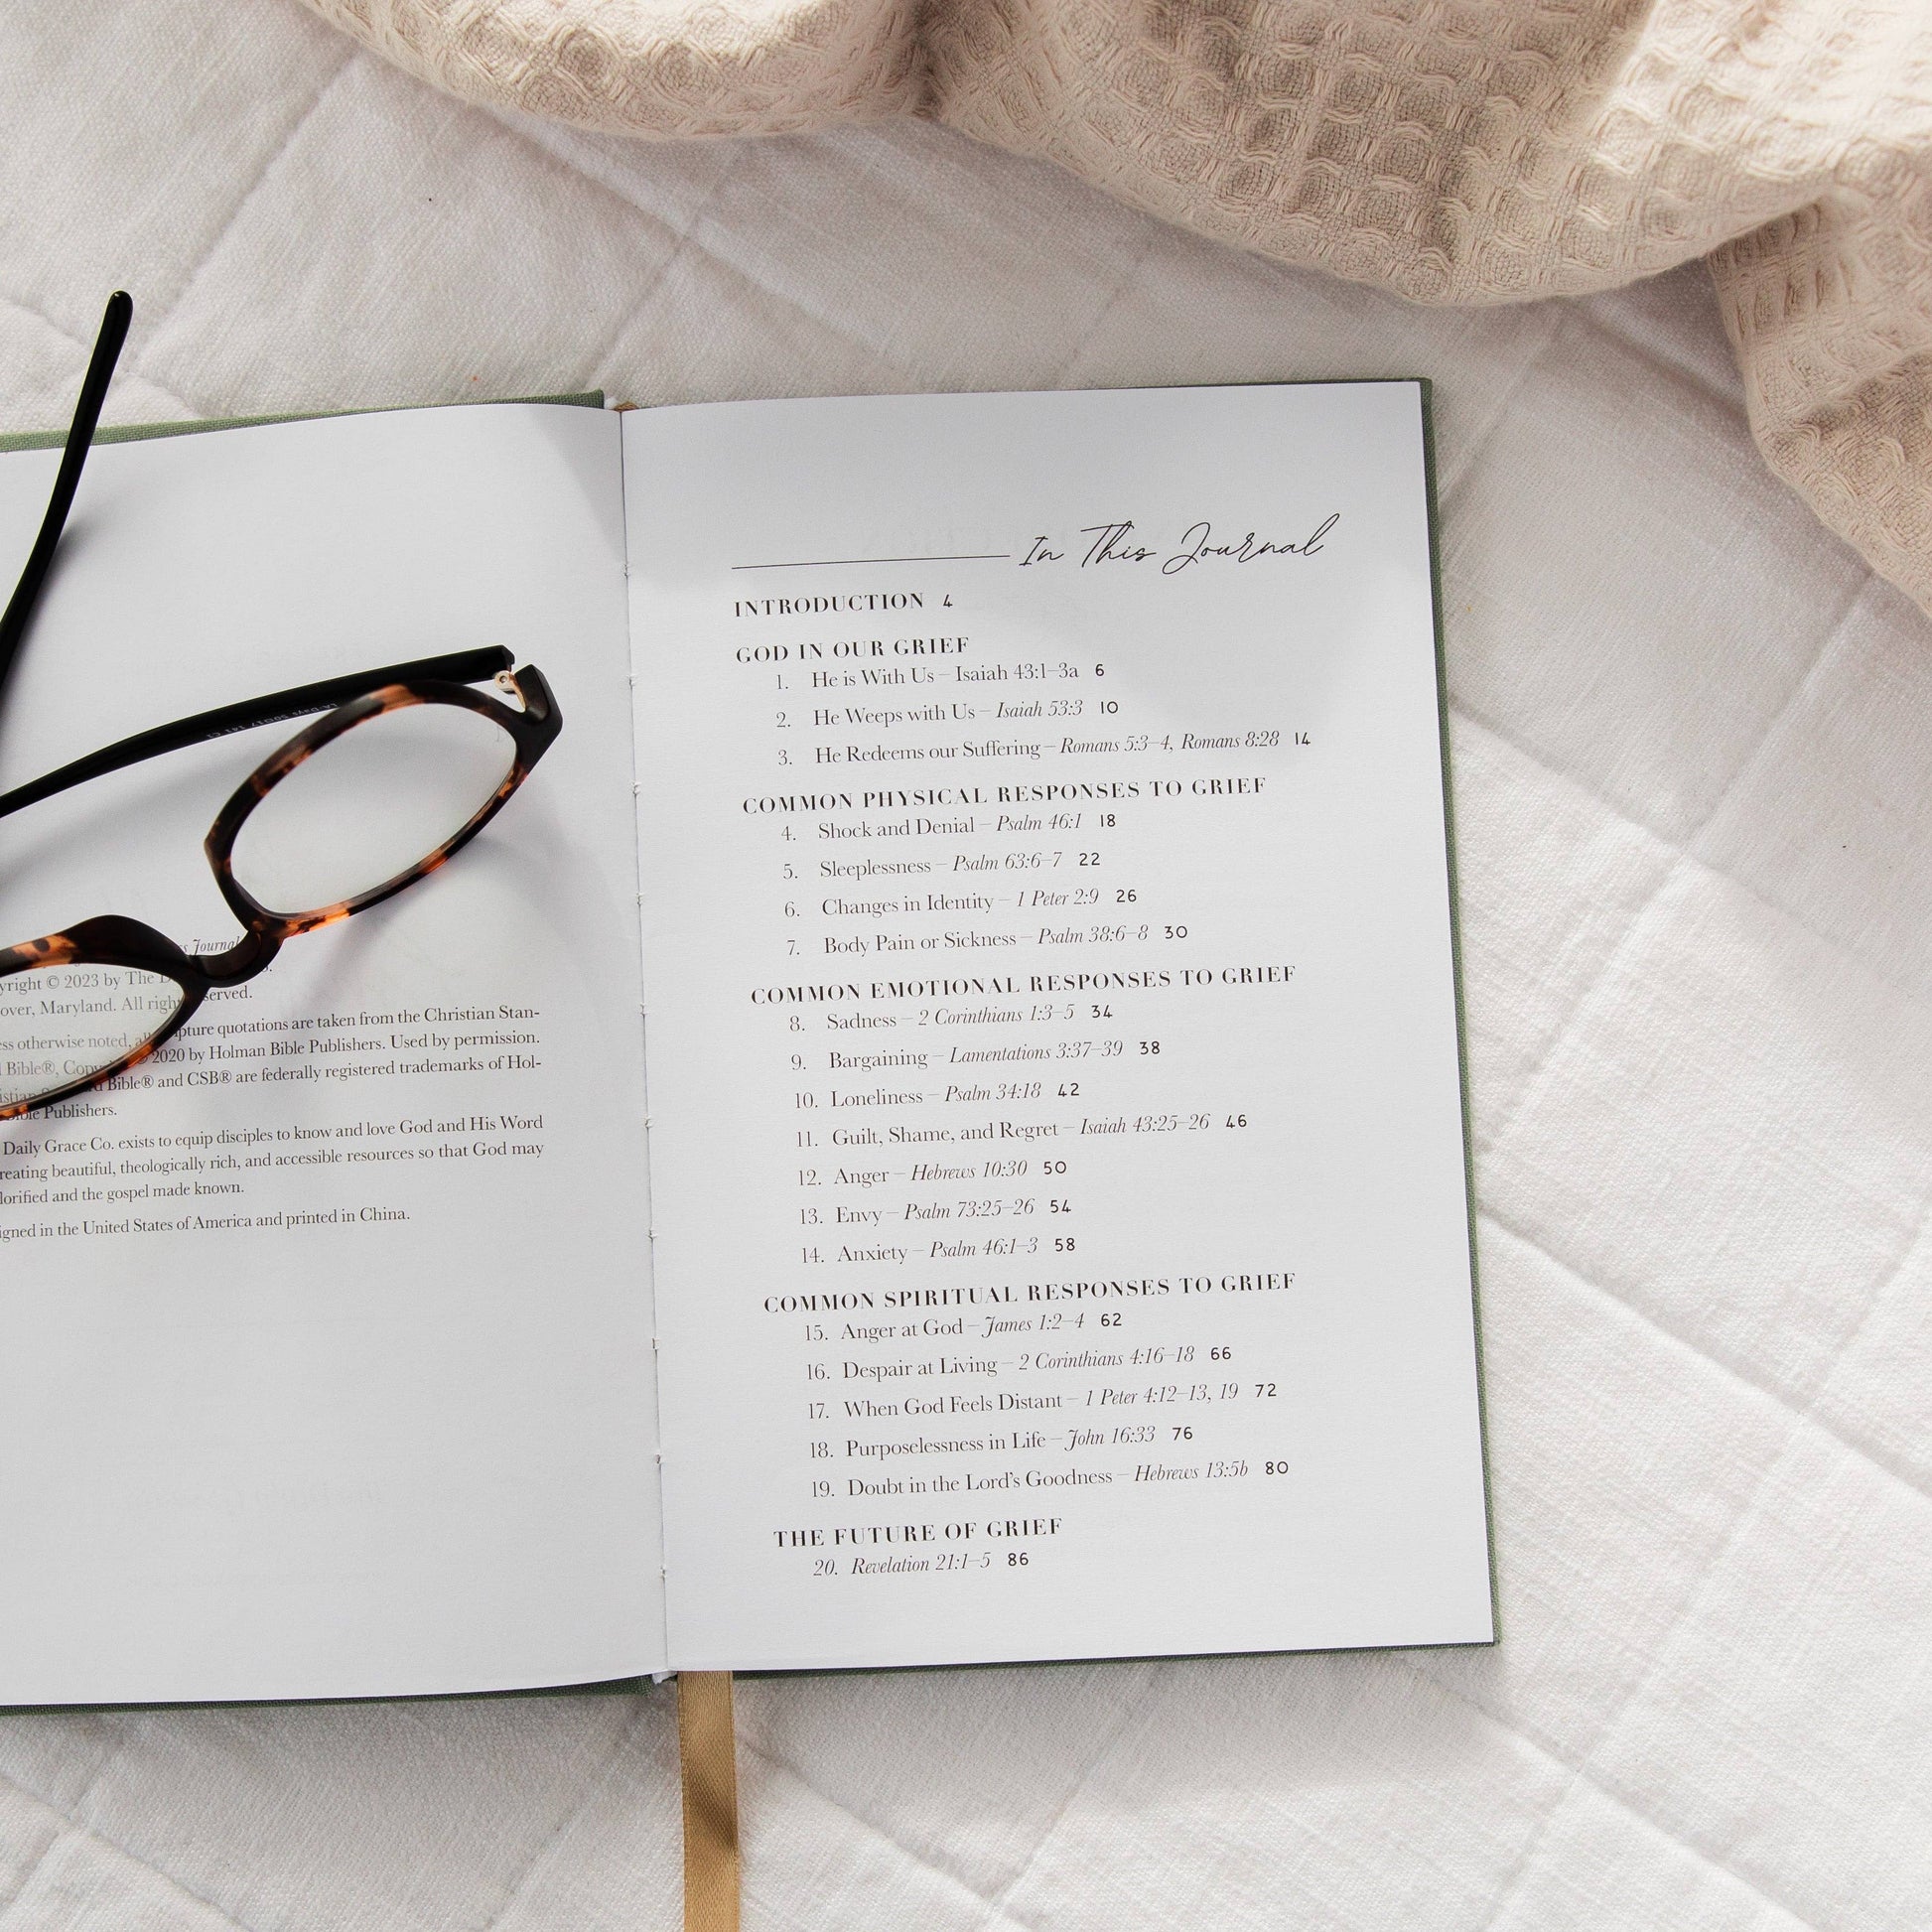 Journal
yright © 2023 by The D
over, Maryland. All rights served.
ess otherwise noted, all scripture quotations are taken from the Christian Stan-
Bible®, Copy 2020 by Holman Bible Publishers. Used by permission.
istian Bible® and CSB® are federally registered trademarks of Hol-
Bible Publishers.
Daily Grace Co. exists to equip disciples to know and love God and His Word
reating beautiful, theologically rich, and accessible resources so that God may
lorified and the gospel made known.
igned in the United States of America and printed in China.
In This Journal
INTRODUCTION 4
GOD IN OUR GRIEF
1. He is With Us – Isaiah 43:1–3a 6
2. He Weeps with Us – Isaiah 53:3 10
3. He Redeems our Suffering – Romans 5:3–4, Romans 8:28 14
COMMON PHYSICAL RESPONSES TO GRIEF
4. Shock and Denial – Psalm 46:1 18
5. Sleeplessness – Psalm 63:6–7 22
6. Changes in Identity – 1 Peter 2:9 26
7. Body Pain or Sickness – Psalm 38:6–8 30
COMMON EMOTIONAL RESPONSES TO GRIEF
8. Sadness – 2 Corinthians 1:3–5 34
9. Bargaining – Lamentations 3:37–39 38
10. Loneliness – Psalm 34:18 42
11. Guilt, Shame, and Regret – Isaiah 43:25–26 46
12. Anger – Hebrews 10:30 50
13. Envy – Psalm 73:25–26 54
14. Anxiety – Psalm 46:1–3 58
COMMON SPIRITUAL RESPONSES TO GRIEF
15. Anger at God – James 1:2–4 62
16. Despair at Living – 2 Corinthians 4:16–18 66
17. When God Feels Distant – 1 Peter 4:12–13, 19 72
18. Purposelessness in Life – John 16:33 76
19. Doubt in the Lord's Goodness – Hebrews 13:5b 80
THE FUTURE OF GRIEF
20. Revelation 21:1–5 86